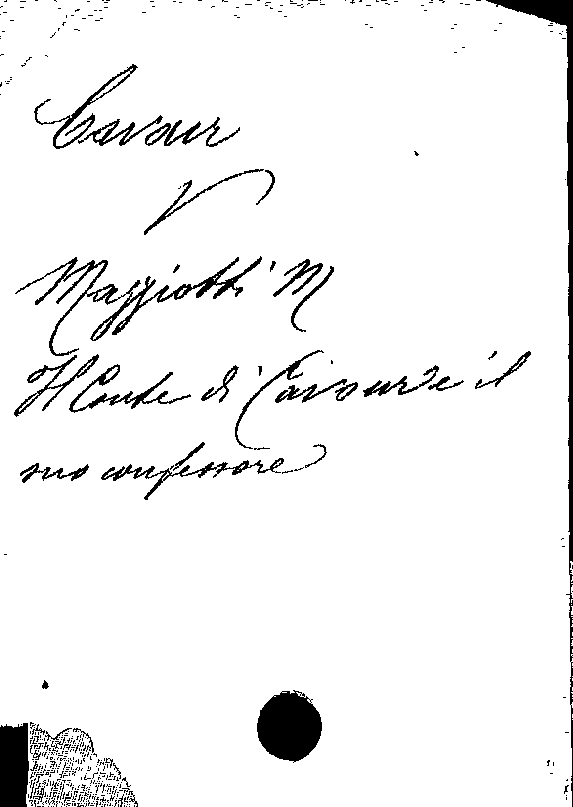 Cavour
V
Mazziotti M
Il Conte di Cavour e il
suo confessore